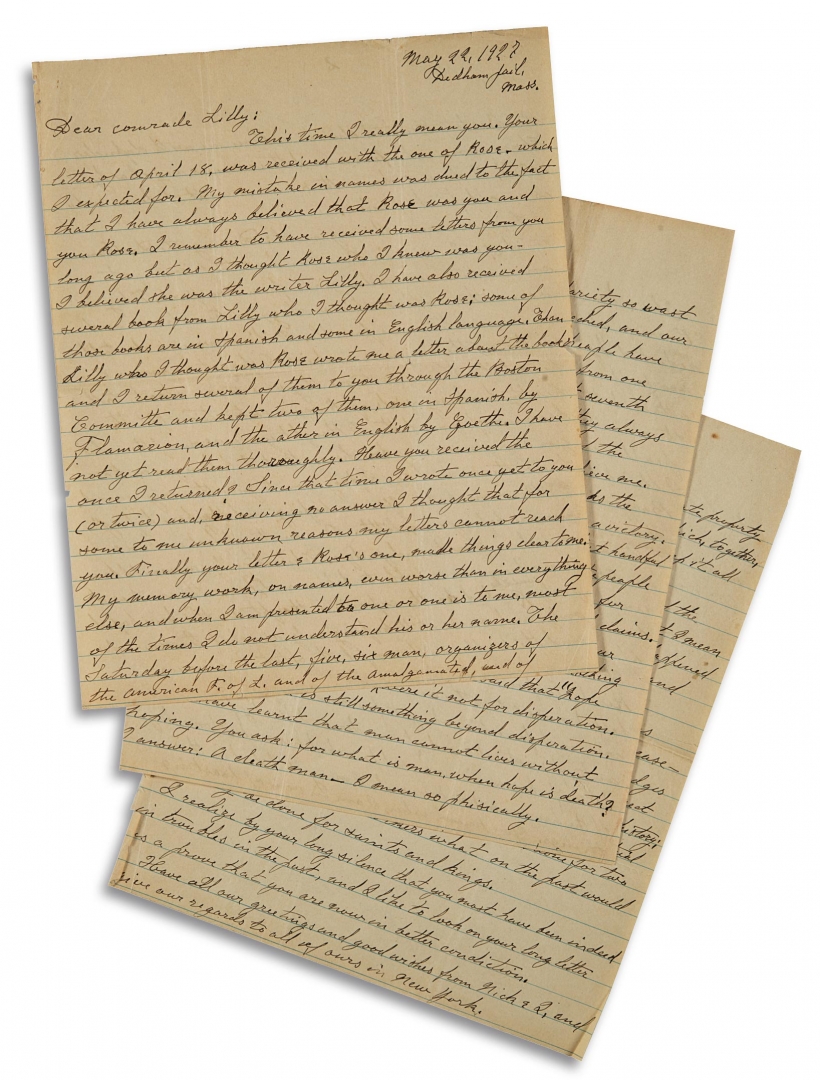 May 22, 1927
Dedham Jail,
Mass.
Dear comrade Lilly:
This time I really mean you. Your
letter of April 18, was received with the one of Rose - which
I expected for. My mistake in names was dued to the fact
that I have always believed that Rose was you and
you Rose. I remember to have received some letters from you
long ago but as I thought Rose who I knew was you -
I believed she was the writer Lilly. I have also received
several book from Lilly who I thought was Rose; some of
those books are in Spanish and some in English language. Than
Lilly who I thought was Rose wrote me a letter about the books
and I return several of them to you through the Boston
Committe and kept two of them, one in Spanish, by
Flamarion, and the other in English by Goethe. I have
not yet read them thoroughly. Heave you received the
once I returned? Since that time I wrote once yet to you
(or twice) and, receiving no answer I thought that for
some to me unknown reasons my letters cannot reach
you. Finally your letter & Rose's one, made things clear to me.
My memory work, on names, even worse than in everything
else, and when I am presented to one or one is to me, most
of the times I do not understand his or her name. The
Saturday before the last, five, six man, organizers of
the American F. of L. and of the Amalgamated, and of
variety so wast
ched, and our
people have
from one
seventh
they always
the
ieve me.
ks the
a victory.
t handful
people
for
claims.
our
thing
said that "hope
were it not for disperation.
is still something beyond disperation.
have learnt that man cannot lives without
hoping. You ask: for what is man, when hope is death?
I answer: A death man - I mean so phisically.
te property
ich, together,
p it all
the
t I mean
ppened
and
s
ease -
dges
ect
history:
ial
none, for two
mers what on the past would
be done for saints and kings.
I realize by your long silence that you most have been indeed
in troubles in the past, and I like to look on your long letter
is a prove that you are now in better condiction.
Have all our greetings and good wishes from Nick & I, and
give our regards to all of ours in New York.